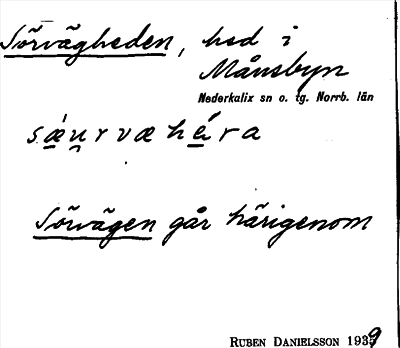 Sörvägheden, hed i
Månsbyn
Nederkalix sn o. tg. Norrb. län
sæurvæhéra
Sörvägen går härigenom
RUBEN DANIELSSON 1939